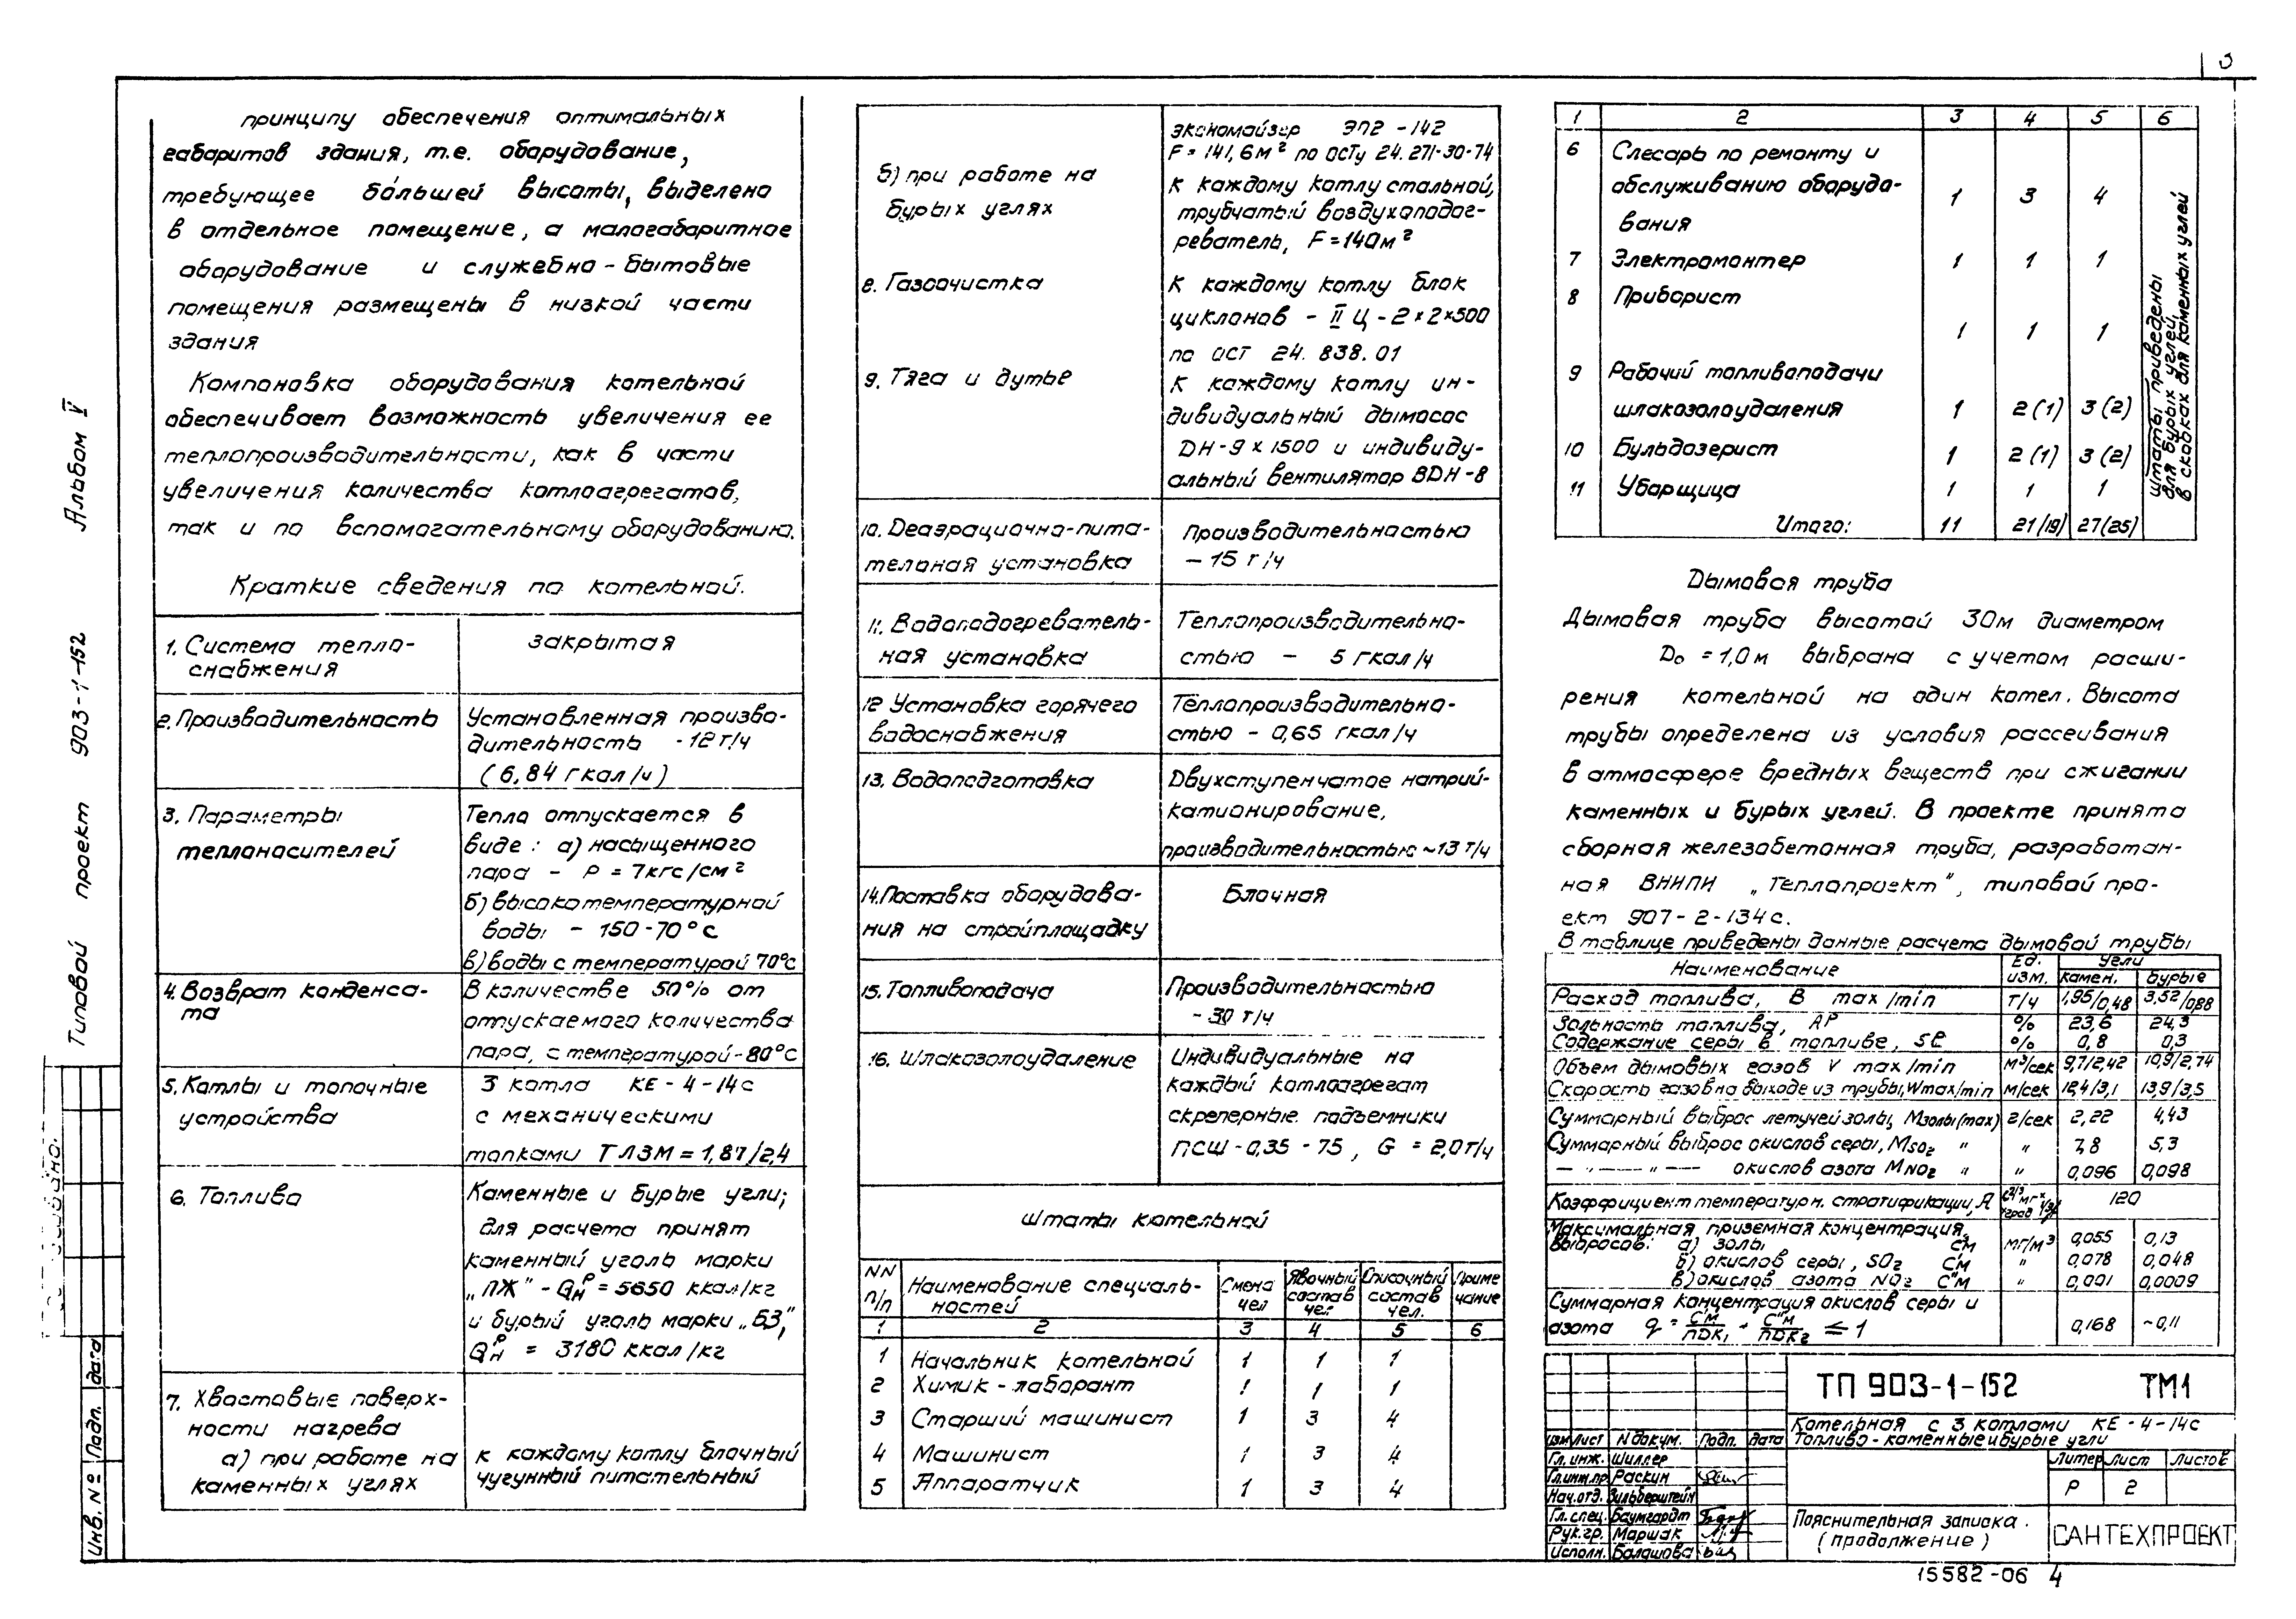 3
принципу обеспечения оптимальных
габаритов здания, т.е. оборудование,
требующее бо́льшей высоты, выделено
в отдельное помещение, а малогабаритное
оборудование и служебно-бытовые
помещения размещены в низкой части
здания
Компоновка оборудования котельной
обеспечивает возможность увеличения ее
теплопроизводительности, как в части
увеличения количества котлоагрегатов,
так и по вспомогательному оборудованию.
Краткие сведения по котельной.
1. Система тепло-снабжения закрытая
2. Производительность Установленная произво-
дительность - 12 т/ч
(6,84 гкал/ч)
3. Параметры Тепло отпускается в
теплоносителей виде: а) насыщенного
пара - P = 7кгс/см²
б) высокотемпературной
воды - 150-70°с
в) воды с температурой 70°с
4. Возврат конденса-та В количестве 50% от
отпускаемого количества
пара, с температурой-80°с
5. Котлы и топочные 3 котла КЕ-4-14с
устройства с механическими
топками ТЛЗМ = 1,87/2,4
6. Топливо Каменные и бурые угли;
для расчета принят
каменный уголь марки
„ПЖ" - Qнр = 5650 ккал/кг
и бурый уголь марки „Б3",
Qнр = 3180 ккал/кг
7. Хвостовые поверх-
ности нагрева
а) при работе на к каждому котлу блочный
каменных углях чугунный питательный
экономайзер ЭП2-142
F = 141,6м² по ОСТу 24.271-30-74
б) при работе на К каждому котлу стальной,
бурых углях трубчатый воздухоподог-
реватель, F = 140м²
8. Газоочистка К каждому котлу блок
циклонов - II Ц - 2×2×500
по ОСТ 24. 838. 01
9. Тяга и дутье К каждому котлу ин-
дивидуальный дымосос
ДН-9 х 1500 и индивиду-
альный вентилятор ВДН-8
10. Деаэрационно-пита- Производительностью
тельная установка - 15 т/ч
11. Водоподогреватель- Теплопроизводительно-
ная установка стью - 5 гкал/ч
12 Установка горячего Теплопроизводительно-
водоснабжения стью - 0,65 гкал/ч
13. Водоподготовка Двухступенчатое натрий-
катионирование,
производительностью ~13 т/ч
14. Поставка оборудова- Блочная
ния на стройплощадку
15. Топливоподача Производительностью
~ 30 т/ч
16. Шлакозолоудаление Индивидуальные на
каждый котлоагрегат
скреперные подъемники
ПСШ-0,35-75, G = 2,0т/ч
Штаты котельной
NN п/п Наименование специаль-ностей Смена чел Явочный состав чел. Списочный состав чел. Приме чание
1 2 3 4 5 6
1 Начальник котельной 1 1 1
2 Химик-лаборант 1 1 1
3 Старший машинист 1 3 4
4 Машинист 1 3 4
5 Аппаратчик 1 3 4
1 2 3 4 5 6
6 Слесарь по ремонту и
обслуживанию оборудо-
вания 1 3 4
7 Электромонтер 1 1 1
8 Приборист 1 1 1
9 Рабочий топливоподачи
шлакозолоудаления 1 2(1) 3(2)
10 Бульдозерист 1 2(1) 3(2)
11 Уборщица 1 1 1
Итого: 11 21(19) 27(25)
Штаты приведены
для бурых углей,
в скобках для каменных углей
Дымовая труба
Дымовая труба высотой 30м диаметром
Do = 1,0м выбрана с учетом расши-
рения котельной на один котел. Высота
трубы определена из условия рассеивания
в атмосфере вредных веществ при сжигании
каменных и бурых углей. В проекте принята
сборная железобетонная труба, разработан-
ная ВНИПИ „Теплопроект", типовой про-
ект 907-2-134с.
В таблице приведены данные расчета дымовой трубы
Наименование Ед. изм. Угли камен. бурые
Расход топлива, В max/min т/ч 1,95/0,48 3,52/0,88
Зольность топлива, Aр % 23,6 24,3
Содержание серы в топливе, Sр % 0,8 0,3
Объем дымовых газов V max/min м³/сек 9,7/2,42 10,9/2,74
Скорость газов на выходе из трубы, Wmax/min м/сек 12,4/3,1 13,9/3,5
Суммарный выброс летучей золы, Mзолы(max) г/сек 2,22 4,43
Суммарный выброс окислов серы, MSO2 " " 7,8 5,3
— " —— " —— окислов азота MNO2 " " 0,096 0,098
Коэффициент температурн. стратификации, А 120
Максимальная приземная концентрация
выбросов: а) золы См мг/м³ 0,055 0,13
б) окислов серы, SO2 С'м " 0,078 0,048
в) окислов азота NO2 С"м " 0,001 0,0009
Суммарная концентрация окислов серы и
азота q = С'м/ПДК1 + С"м/ПДК2 ≤ 1 0,168 ~0,11
ТП 903-1-152 ТМ1
Котельная с 3 котлами КЕ-4-14с
Топливо-каменные и бурые угли
Изм Лист N докум. Подп. Дата
Гл. инж. Шиллер
Гл.инж.пр. Раскин
Нач.отд. Зильберштейн
Гл.спец. Баумгардт
Рук.гр. Маршак
Исполн. Балашова
Литер Лист Листов
Р 2
Пояснительная записка.
(продолжение)
САНТЕХПРОЕКТ
15582-06 4
Типовой проект 903-1-152 Альбом V
Инв. № Подп. дата